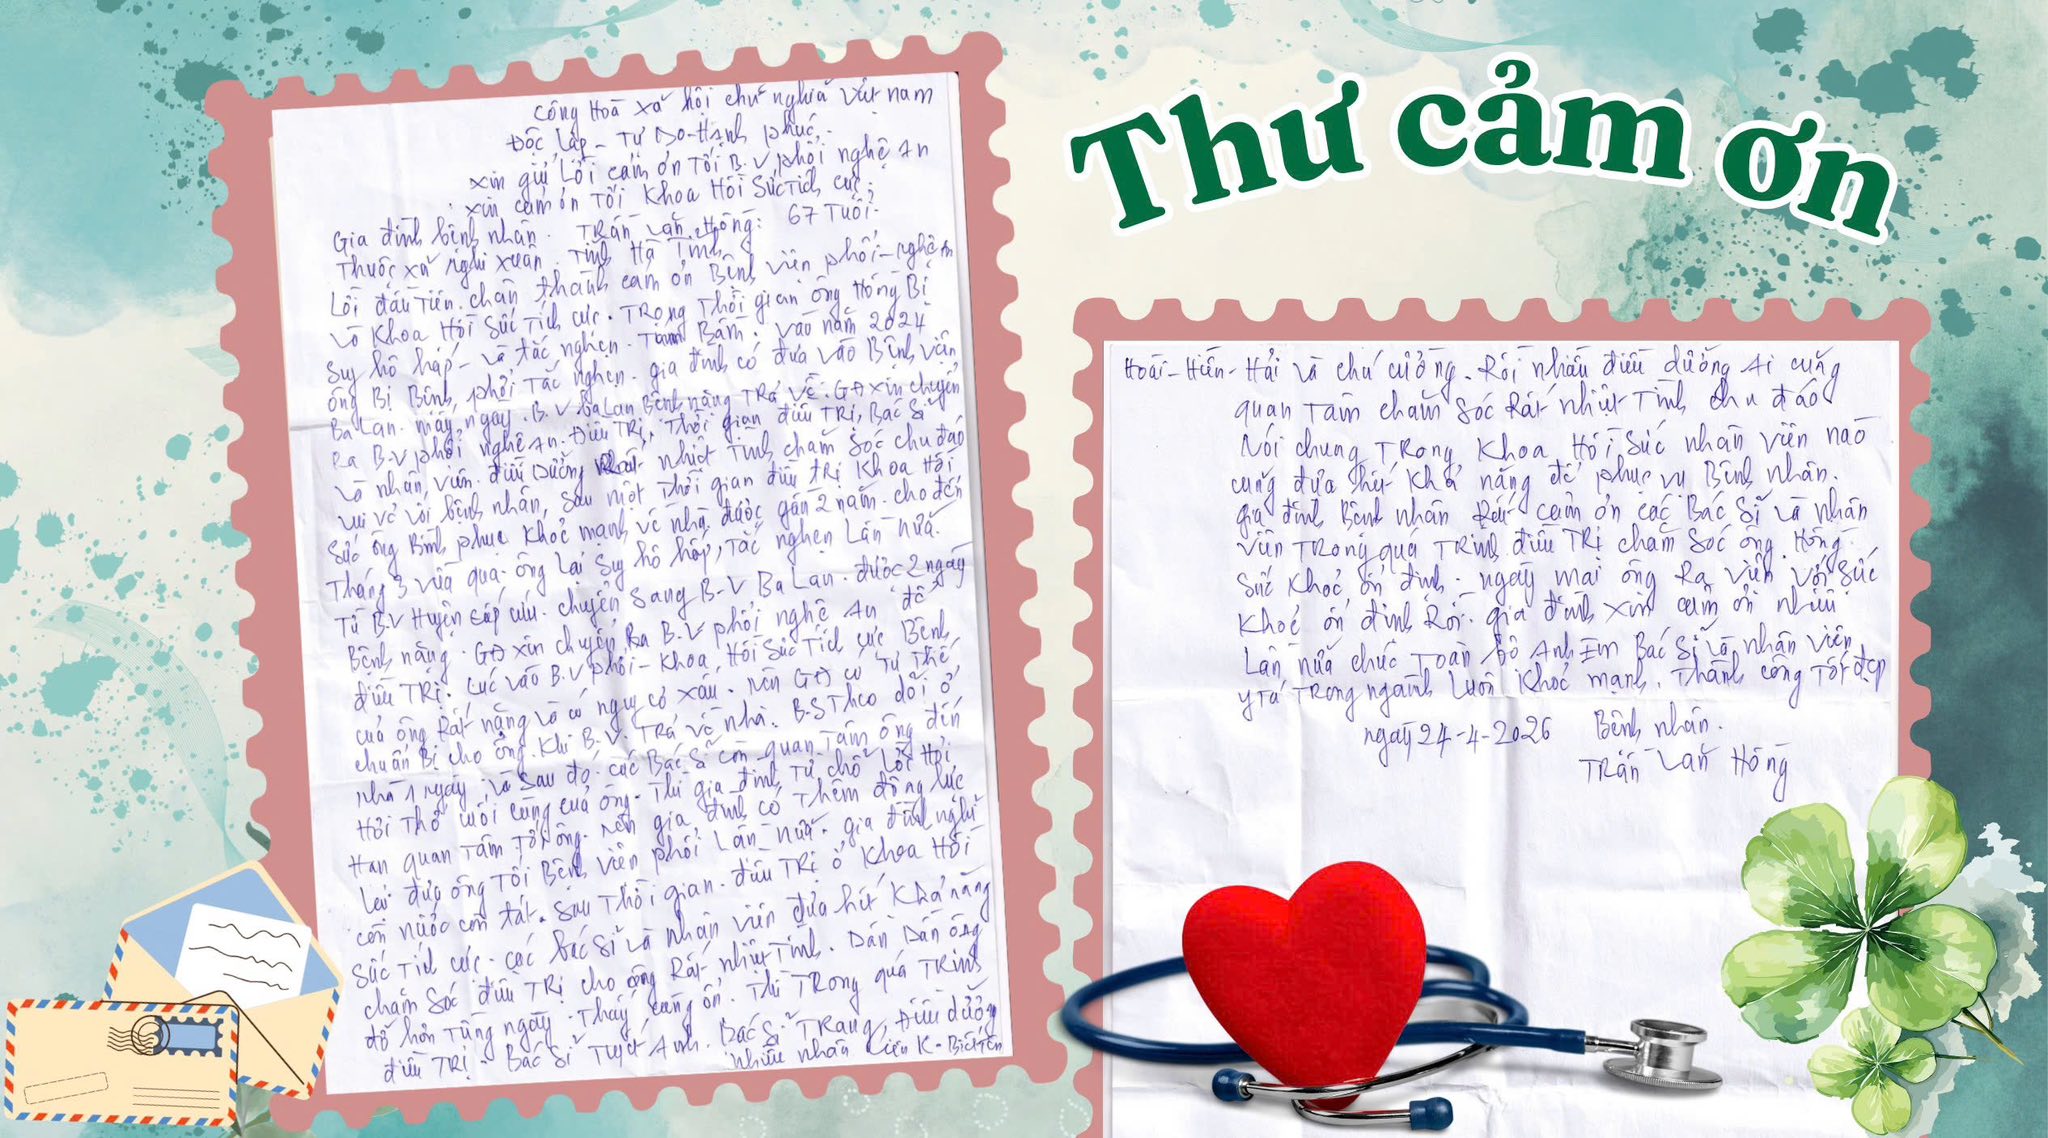 Thư cảm ơn
Công Hoà xã hội chủ nghĩa Việt nam
Độc lập - Tự Do - Hạnh phúc.
Xin gửi Lời cảm ơn Tới B.V phổi nghệ An
Xin cảm ơn Tới Khoa Hồi Sức Tích cực.
Gia đình bệnh nhân. TRần Văn Hồng: 67 Tuổi.
Thuộc xã Nghi Xuân. Tỉnh Hà Tĩnh
Lời đầu Tiên. chân thành cảm ơn Bệnh viện phổi - nghệ An
Và Khoa Hồi Sức Tích cực. TRong Thời gian ông Hồng Bị
Suy hô hấp - và tắc nghẽn. vào năm 2024
ông Bị Bệnh phổi Tắc nghẽn. gia đình có đưa vào Bệnh viện
Ba Lan. mấy ngày. B.V Ba Lan Bệnh nặng TRả về. GĐ xin chuyển
Ra B.V phổi nghệ An. Điều TRị. Thời gian điều TRị, Bác Sĩ
Và nhân viên. điều Dưỡng nhiệt Tình chăm Sóc chu đáo
vui vẻ với bệnh nhân, Sau một Thời gian điều trị Khoa Hồi
Sức ông Bình phục Khoẻ mạnh về nhà được gần 2 năm. cho đến
Tháng 3 vừa qua. ông Lại Suy hô hấp, Tắc nghẽn Lần nữa.
Từ B.V Huyện cấp cứu. chuyển Sang B-V Ba Lan. được 2 ngày
Bệnh nặng. GĐ xin chuyển Ra B.V phổi nghệ An để
điều TRị. Lúc vào B.V phổi - Khoa Hồi Sức Tích cực Bệnh
của ông Rất nặng và có nguy cơ xấu. nên GĐ có Tư Thế
chuẩn Bị cho ông. Khi B.V. TRả về nhà. B.S Theo dõi ở
nhà 1 ngày. và Sau đó. các Bác Sĩ còn quan Tâm ông đến
Hơi Thở cuối cùng của ông. Thì gia đình Tự chở Lời Hỏi
Han quan Tâm Tới ông. nên gia đình có Thêm động lực
Lại đưa ông Tới Bệnh viện phổi Lần nữa. gia đình nghĩ
còn nước còn tát. Sau Thời gian. điều TRị ở Khoa Hồi
Sức Tích cực. các bác Sĩ và nhân viên đưa hết Khả năng
chăm Sóc điều TRị cho ông Rất nhiệt Tình. Dần Dần ông
đỡ hơn Từng ngày. Thấy cũng ổn. Thì TRong quá TRình
điều TRị - Bác Sĩ Tuyết Anh. Bác Sĩ TRang, Điều dưỡng
nhiều nhân
Hoài - Hiền - Hải và chú cường. Rồi nhiều điều dưỡng Ai cũng
quan Tâm chăm Sóc Rất nhiệt Tình chu đáo
Nói chung TRong Khoa Hồi Sức nhân viên nào
cũng đưa hết Khả năng để phục vụ Bệnh nhân.
gia đình Bệnh nhân Rất cảm ơn các Bác Sĩ và nhân
viên TRong quá TRình điều TRị chăm Sóc ông. Hồng.
Sức Khoẻ ổn định. ngày mai ông Ra viện với Sức
Khoẻ ổn định Rồi. gia đình xin cảm ơn nhiều
Lần nữa chúc Toàn bộ Anh Em Bác Sĩ và nhân viên
y Tá TRong ngành Luôn Khoẻ mạnh. Thành công Tốt đẹp
ngày 24-4-2026 Bệnh nhân.
TRần Văn Hồng